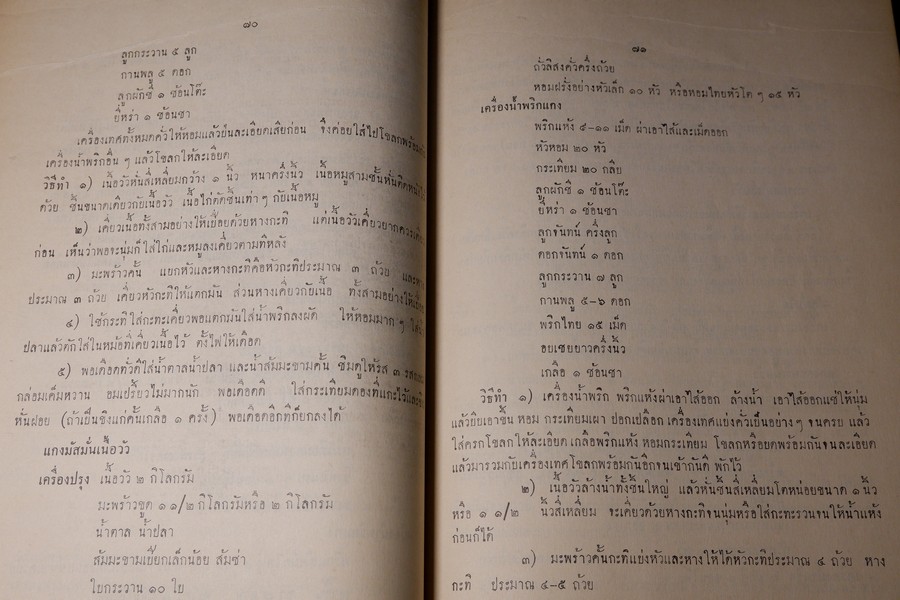 ๗๐
ลูกกระวาน ๕ ลูก
กานพลู ๔ ดอก
ลูกผักชี ๑ ช้อนโต๊ะ
ยี่หร่า ๑ ช้อนชา
เครื่องเทศทั้งหมดคั่วให้หอมแล้วป่นละเอียดเสียก่อน จึงค่อยใส่ไปโขลกพร้อมกับ
เครื่องน้ำพริกอื่น ๆ แล้วโขลกให้ละเอียด
วิธีทำ ๑) เนื้อวัวหั่นสี่เหลี่ยมกว้าง ๑ นิ้ว หนาครึ่งนิ้ว เนื้อหมูสามชั้นหั่นติดหนัง
ด้วย ชิ้นขนาดเดียวกับเนื้อวัว เนื้อไก่ตัดชิ้นเท่า ๆ กับเนื้อหมู
๒) เคี่ยวเนื้อทั้งสามอย่างให้เปื่อยด้วยหางกะทิ แต่เนื้อวัวเคี่ยวยากควร
ก่อน เห็นว่าพอจะนุ่มก็ใส่ไก่และหมูลงเคี่ยวตามทีหลัง
๓) มะพร้าวคั้น แยกหัวและหางกะทิคือหัวกะทิประมาณ ๓ ถ้วย และ
ประมาณ ๓ ถ้วย เคี่ยวหัวกะทิให้แตกมัน ส่วนหางเคี่ยวกับเนื้อ ทั้งสามอย่างให้เปื่อย
๔) ใช้กระทิใส่กะทะเคี่ยวพอแตกมันใส่น้ำพริกลงผัด ให้หอมมาก ๆ ใส่
ปลาแล้วตักใส่ในหม้อที่เคี่ยวเนื้อไว้ ตั้งไฟให้เดือด
๕) พอเดือดทั่วดีใส่น้ำตาลน้ำปลา และน้ำส้มมะขามคั้น ชิมดูให้รส ๓ รส
กล่อมเค็มหวาน อมเปรี้ยวไม่มากนัก พอเดือดดี ใส่กระเทียมดองที่แกะไว้และ
หั่นฝอย (ถ้าเป็นขิงแก่คั้นเกลือ ๑ ครั้ง) พอเดือดอีกทีก็ยกลงได้
แกงมัสมั่นเนื้อวัว
เครื่องปรุง เนื้อวัว ๒ กิโลกรัม
มะพร้าวขูด ๑ ๑/๒ กิโลกรัมหรือ ๒ กิโลกรัม
น้ำตาล น้ำปลา
ส้มมะขามเปียกเล็กน้อย ส้มซ่า
ใบกระวาน ๑๐ ใบ
๗๑
ถั่วลิสงคั่วครึ่งถ้วย
หอมฝรั่งอย่างหัวเล็ก ๑๐ หัว หรือหอมไทยหัวโต ๆ ๑๕ หัว
เครื่องน้ำพริกแกง
พริกแห้ง ๙-๑๑ เม็ด ผ่าเอาไส้และเม็ดออก
หัวหอม ๒๐ หัว
กระเทียม ๒๐ กลีบ
ลูกผักชี ๑ ช้อนโต๊ะ
ยี่หร่า ๑ ช้อนชา
ลูกจันทน์ ครึ่งลูก
ดอกจันทน์ ๑ ดอก
ลูกกระวาน ๗ ลูก
กานพลู ๕-๖ ดอก
พริกไทย ๑๕ เม็ด
อบเชยยาวครึ่งนิ้ว
เกลือ ๑ ช้อนชา
วิธีทำ ๑) เครื่องน้ำพริก พริกแห้งผ่าเอาไส้ออก ล้างน้ำ เอาไส้ออกแช่ให้นุ่ม
แล้วบีบเอาขึ้น หอม กระเทียมเผา ปอกเปลือก เครื่องเทศแบ่งคั่วเป็นอย่าง ๆ จนครบ แล้ว
ใส่ครกโขลกให้ละเอียด เกลือพริกแห้ง หอมกระเทียม โขลกหรือบดพร้อมกันจนละเอียด
แล้วมารวมกับเครื่องเทศโขลกพร้อมกันอีกจนเข้ากันดี พักไว้
๒) เนื้อวัวล้างน้ำทั้งชิ้นใหญ่ แล้วหั่นชิ้นสี่เหลี่ยมโตหน่อยขนาด ๑ นิ้ว
หรือ ๑ ๑/๒ นิ้วสี่เหลี่ยม จะเคี่ยวด้วยหางกะทิจนนุ่มหรือใส่กะทะรวนจนให้น้ำแห้ง
ก่อนก็ได้
๓) มะพร้าวคั้นกะทิแบ่งหัวและหางให้ได้หัวกะทิประมาณ ๔ ถ้วย หาง
กะทิ ประมาณ ๔-๕ ถ้วย